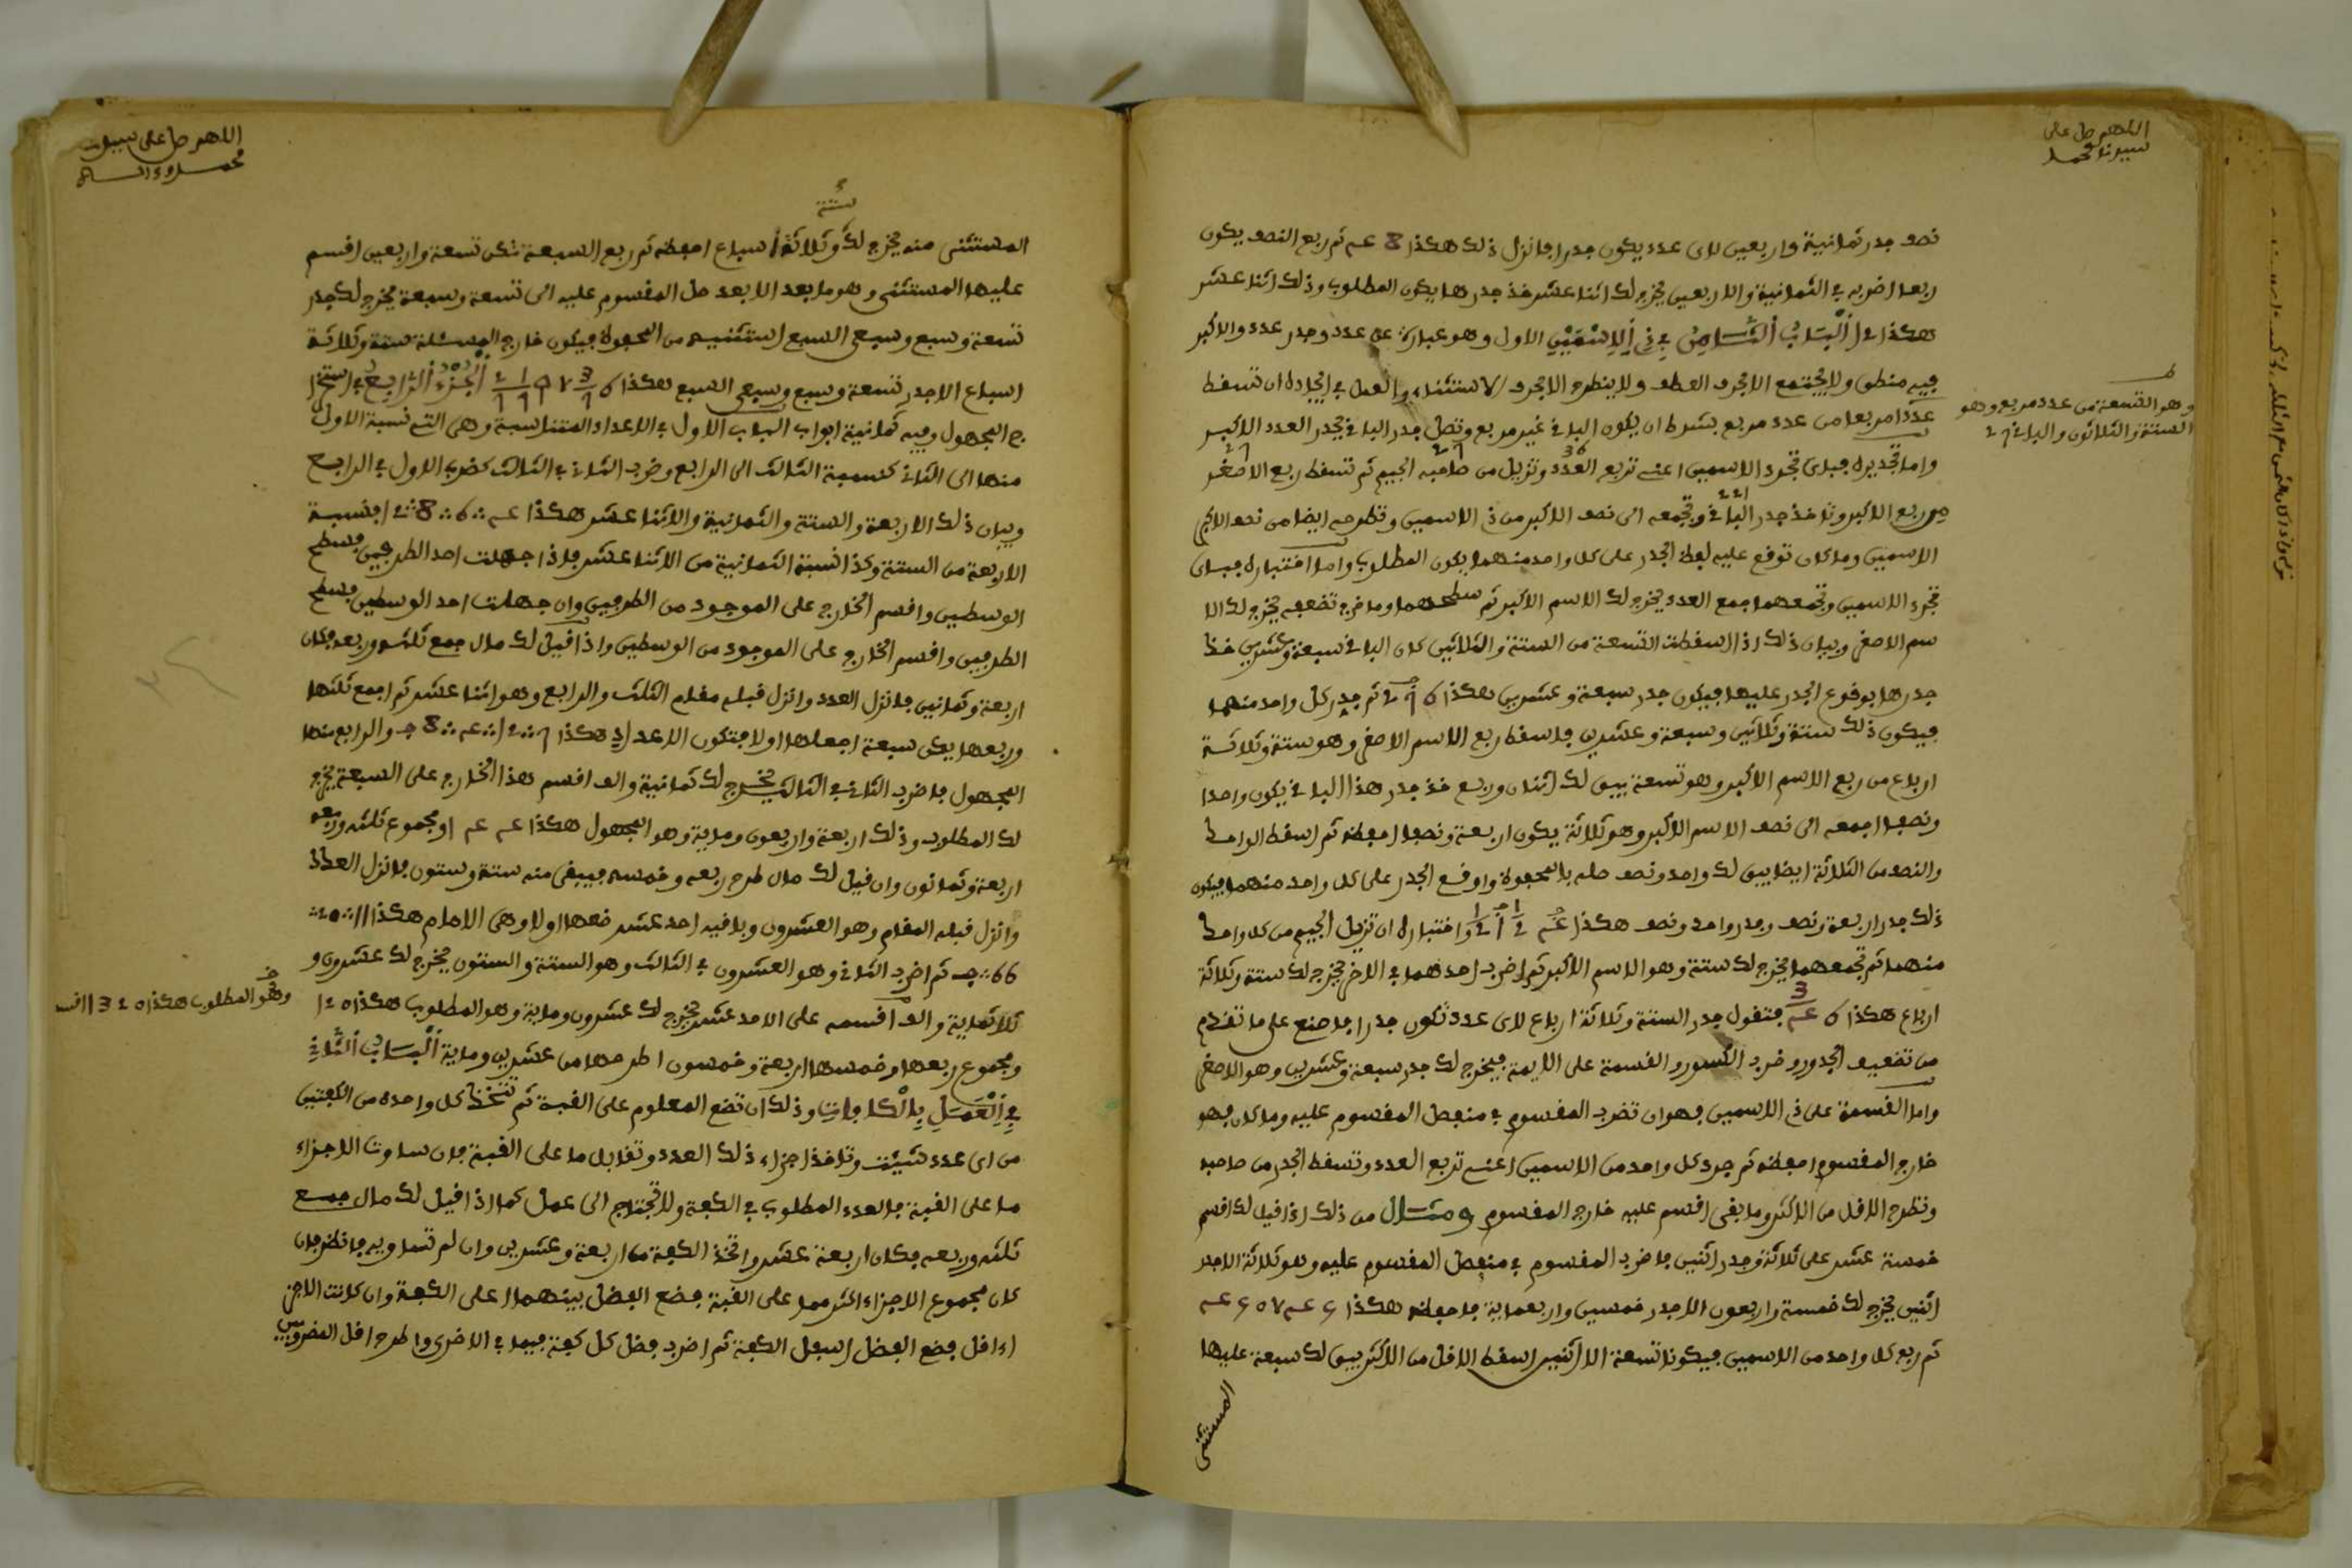 اللهم صل على
سيدنا محمد
نصف جدر ثمانية واربعين لاى عدد يكون جدرا فانزل ذلك هكذا 8 عـ ثم ربع النصف يكون
ربعا اضربه في الثمانية والاربعين يخرج لك اثنا عشر فخذ جدرها يكون المطلوب وذلك اثنا عشر
هكذا ٤١ اَلْبَابُ اَلسَّادِسُ فِي ذِي اِلِاسْمَيْنِ الاول وهو عبارة عن عدد وجدر عدد والاكبر
فيه منطق ولا يجتمع الا بحرف العطف ولا ينطرح الا بحرف الاستثناء والعمل في ايجاده ان تسقط
عددا مربعا من عدد مربع بشرط ان يكون الباقي غير مربع وتصل جدر الباقي بجدر العدد الاكبر
وهو التسعة من عدد مربع وهو
الستة والثلاثون والباقي
واما تجديره فبان تجرد الاسمين اعني تربع العدد وتزيل من صاحبه الجيم ثم تسقط ربع الاصغر
من ربع الاكبر وتاخذ جدر الباقي وتجمعه الى نصف الاكبر من ذي الاسمين وتطرحه ايضا من نصف الاكبر
الاسمين وما كان توقع عليه لفظ الجدر على كل واحد منهما يكون المطلوب واما اختباره فبان
تجرد الاسمين وتجمعهما جمع العدد يخرج لك الاسم الاكبر ثم سطحهما وما خرج تضعفه يخرج لك الا
سم الاصغر وبيان ذلك اذا اسقطت التسعة من الستة والثلاثين كان الباقي سبعة وعشرين فخذ
جدرها بوقوع الجدر عليها فيكون جدر سبعة وعشرين هكذا ثم جدر كل واحد منهما
فيكون ذلك ستة وثلاثين وسبعة وعشرين فاسقط ربع الاسم الاصغر وهو ستة وثلاثة
ارباع من ربع الاسم الاكبر وهو تسعة يبق لك اثنان وربع فخذ جدر هذا الباقي يكون واحدا
ونصفا اجمعه الى نصف الاسم الاكبر وهو ثلاثة يكون اربعة ونصفا احفظه ثم اسقط الواحد
والنصف من الثلاثة ايضا يبق لك واحد ونصف صله بالمحفوظ واوقع الجدر على كل واحد منهما فيكون
ذلك جدر اربعة ونصف وجدر واحد ونصف هكذا واختباره ان تزيل الجيم من كل واحد
منهما ثم تجمعهما يخرج لك ستة وهو الاسم الاكبر ثم اضرب احدهما في الاخر يخرج لك ستة وثلاثة
ارباع هكذا فتقول جدر الستة وثلاثة ارباع لاى عدد تكون جدرا فاصنع على ما تقدم
من تضعيف الجدور وضرب الكسور والقسمة على الايمة فيخرج لك جدر سبعة وعشرين وهو الاصغر
واما القسمة على ذي الاسمين فهو ان تضرب المقسوم في منفصل المقسوم عليه وما كان فهو
خارج المقسوم احفظه ثم جرد كل واحد من الاسمين اعني تربع العدد وتسقط الجدر من صاحبه
وتطرح الاقل من الاكثر وما بقى اقسم عليه خارج المقسوم ومثال من ذلك اذا قيل لك اقسم
خمسة عشر على ثلاثة وجدر اثنين فاضرب المقسوم في منفصل المقسوم عليه وهو ثلاثة الا جدر
اثنين يخرج لك خمسة واربعون الا جدر خمسين واربعماية فاحفظه هكذا
ثم ربع كل واحد من الاسمين فيكونا تسعة الا اثنين اسقط الاقل من الاكثر يبق لك سبعة عليها
المستثنى
اللهم صل على سيدنا
محمد وءاله
ستة
المستثنى منه يخرج لك وثلاثة اسباع احفظه ثم ربع السبعة تكن تسعة واربعين اقسم
عليها المستثنى وهو ما بعد الا بعد حل المقسوم عليه الى تسعة وسبعة يخرج لك جدر
تسعة وسبع وسبعى السبع استثنيه من المحفوظ فيكون خارج المسئلة ستة وثلاثة
اسباع الا جدر تسعة وسبع وسبعى السبع هكذا اَلْجُزْءُ اَلرَّابِعُ في استخرا
ج المجهول وفيه ثمانية ابواب الباب الاول في الاعداد المتناسبة وهى التي نسبة الاول
منها الى الثاني كنسبة الثالث الى الرابع وضرب الثاني في الثالث كضرب الاول في الرابع
وبيان ذلك الاربعة والستة والثمانية والاثنا عشر هكذا فنسبة
الاربعة من الستة وكذا نسبة الثمانية من الاثنا عشر فاذا جهلت احد الطرفين فسطح
الوسطين واقسم الخارج على الموجود من الطرفين وان جهلت احد الوسطين فسطح
الطرفين واقسم الخارج على الموجود من الوسطين واذا قيل لك مال جمع ثلثه وربعه فكان
اربعة وثمانين فانزل العدد وانزل قبله مقام الثلث والرابع وهو اثنا عشر ثم اجمع ثلثها
وربعها يكن سبعة اجعلها اولا فتكون الاعداد هكذا والرابع منها
المجهول فاضرب الثاني في الثالث يخرج لك ثمانية والف اقسم هذا الخارج على السبعة يخرج
لك المطلوب وذلك اربعة واربعون وماية وهو المجهول هكذا ومجموع ثلثه وربعه
اربعة وثمانون وان قيل لك مال طرح ربعه وخمسه فيبقى منه ستة وستون فانزل العدد
وانزل قبله المقام وهو العشرون وباقيه احد عشر ضعها اولا وهى الامام هكذا
66 ثم اضرب الثاني وهو العشرون في الثالث وهو الستة والستون يخرج لك عشرون و
ثلاثماية والف اقسمه على الاحد عشر يخرج لك عشرون وماية وهو المطلوب هكذا
وهو المطلوب هكذا
ومجموع ربعها وخمسها اربعة وخمسون اطرحها من عشرين وماية اَلْبَابُ اَلثَّانِي
فِي اِلْعَمَلِ بِالْكَفَّاتِ وذلك ان تضع المعلوم على القبة ثم تتخذ كل واحدة من الكفتين
من اى عدد شئت وتاخذ اجزاء ذلك العدد وتقابل ما على القبة فان ساوت الاجزاء
ما على القبة فالعدد المطلوب في الكفة ولا تحتاج الى عمل كما اذا قيل لك مال جمع
ثلثه وربعه فكان اربعة عشر واتخذ الكفة من اربعة وعشرين وان لم تساويه فانظر فان
كان مجموع الاجزاء اكثر مما على القبة فضع الفضل بينهما اعلى الكفة وان كانت الاجز
اء اقل فضع الفضل اسفل الكفة ثم اضرب فضل كل كفة فيما في الاخرى واطرح اقل المضروبين